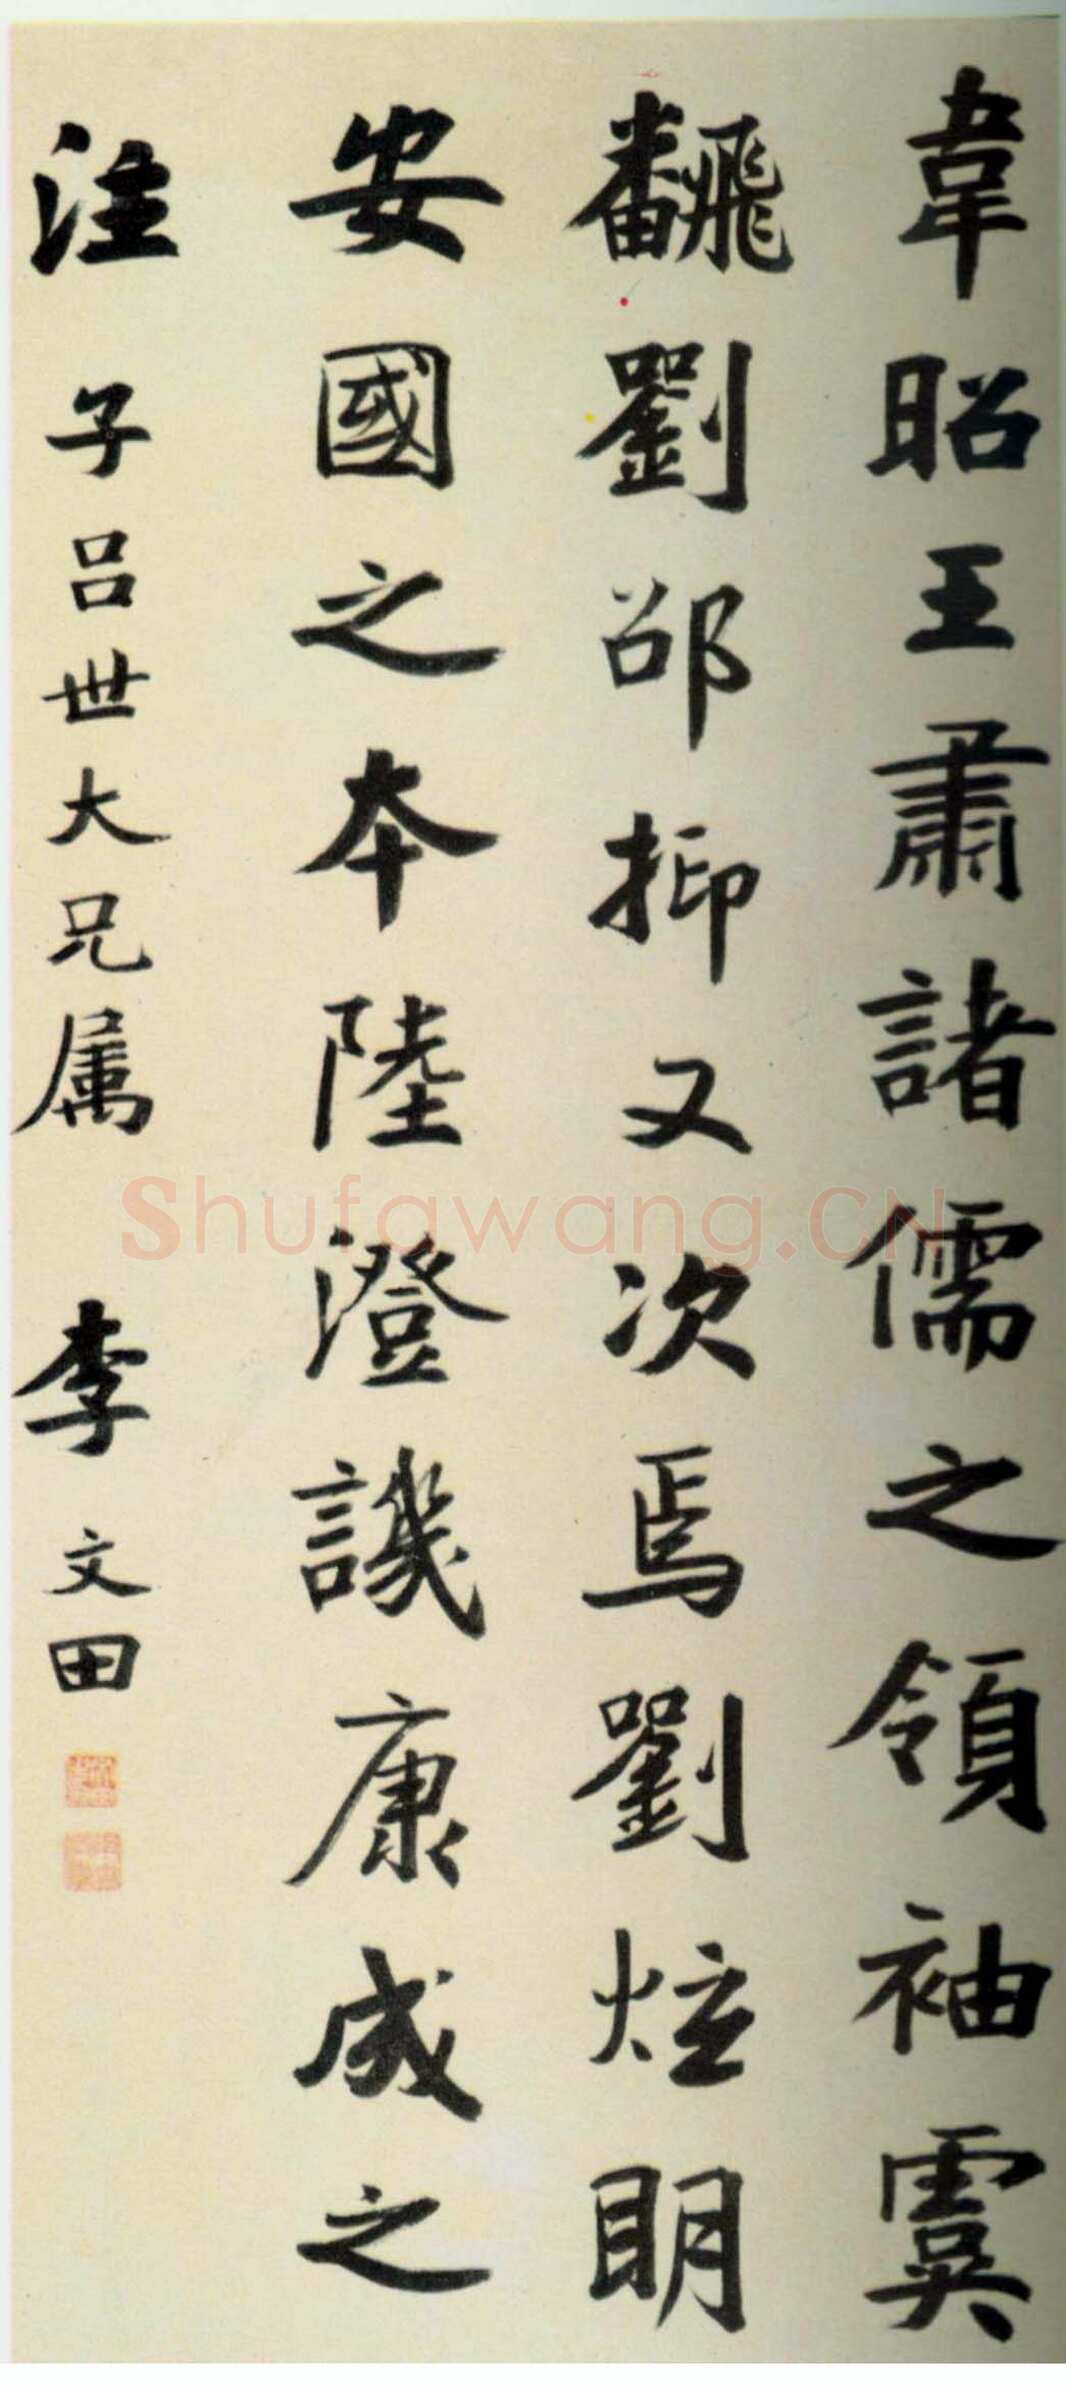 韋昭王肅諸儒之領袖虞
飜劉邵抑又次焉劉炫明
安國之本陸澄譏康成之
注 子呂世大兄属 李文田
Shufawang.CN